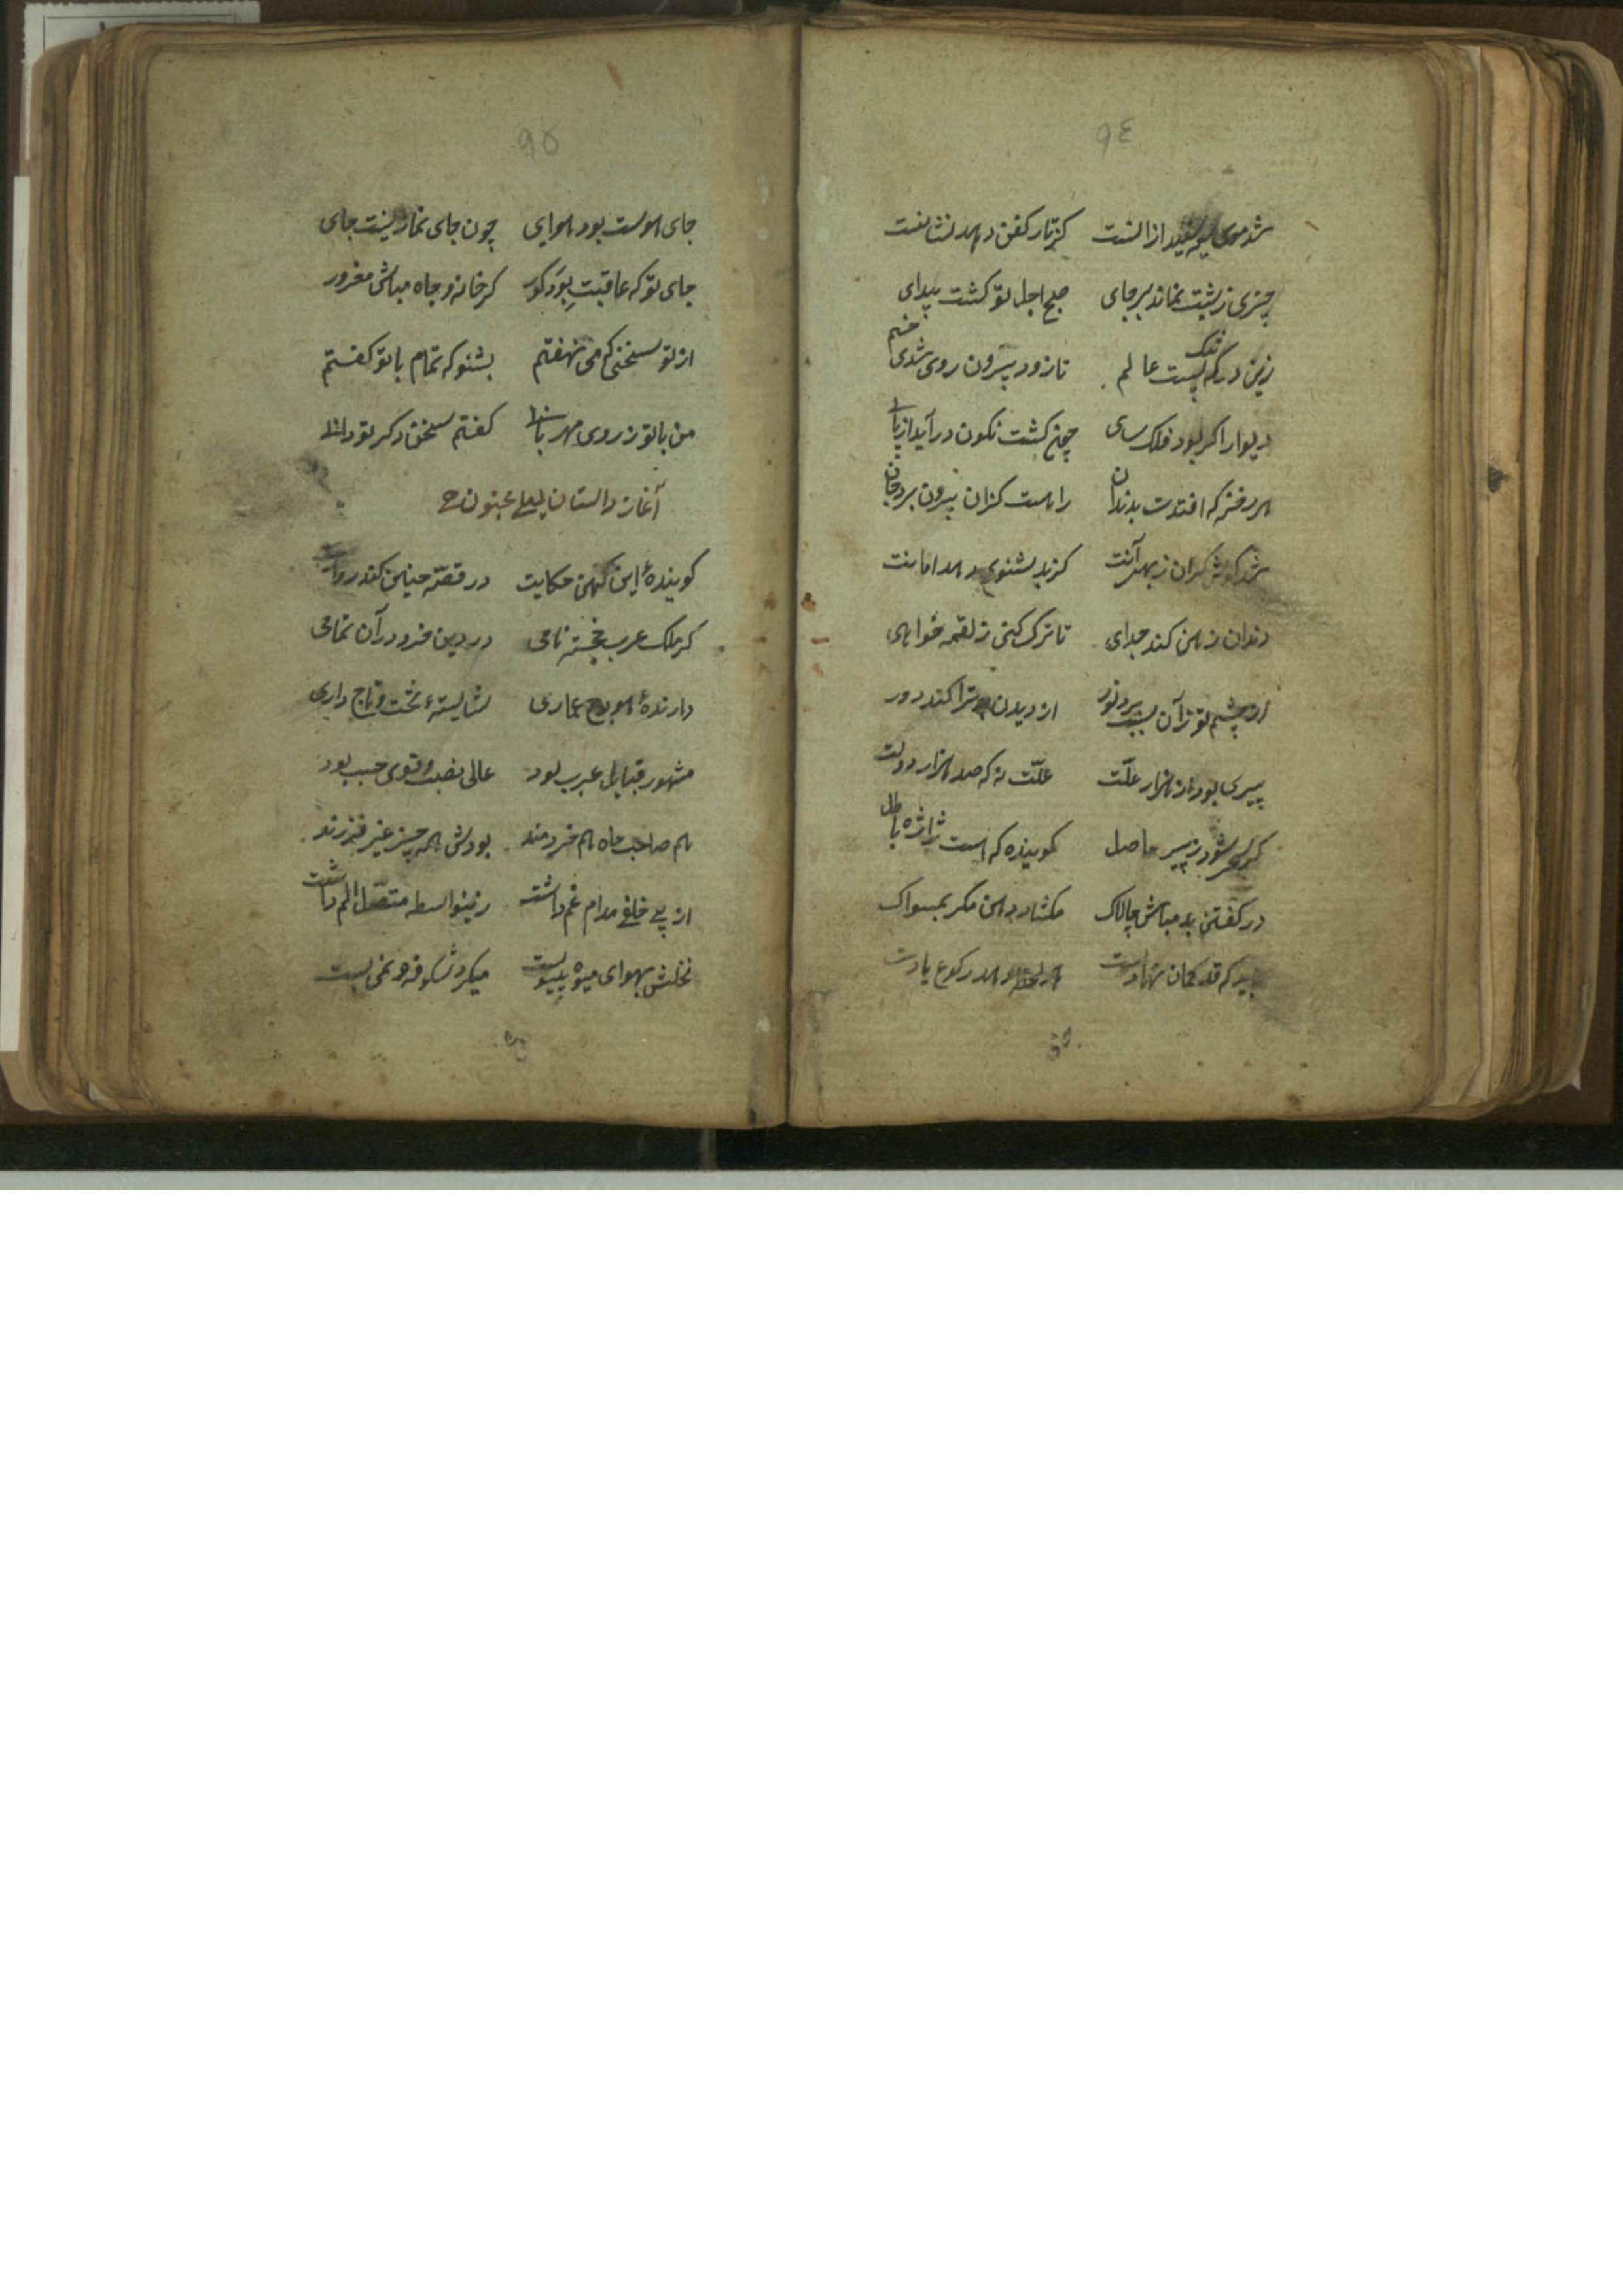 ٩٤
شد موی سیه سفید از آنست کز تار کفن دهد نشانت
چیزی ز شبت نماند بر جای صبح اجل تو گشت پیدای
زین درگه تنگ پست عالم تا زود بیرون روی شدی خم
دیوار اگر بود فلک سای چون گشت نگون در آید از پای
هر رخنه که افتدت بدندان راهست کزان بیرون برد جان
شد گوش گران ز بهر آنت کز بد نشنوی دهد امانت
دندان ز دهن کند جدای تا ترک کنی ز لقمه خواهی
از چشم تو زآن سبب برد نور از دیدن بد ترا کند دور
پیری بود از هزار علّت علّت نه که صد هزار دولت
گر شود ز پیر حاصل گوینده که هست ژاژه باطل
در گفتن بد مباش چالاک مگشا دهن مگر بمسواک
پیر که قد کمان نهادست هر لحظه دهد رکوع یادت
٩٥
جای هوست بود هوایی چون جای نماز نیست جای
جای تو که عاقبت بِوَد گور کز خانه و جاه مباش مغرور
از تو سخنی که می نهفتم بشنو که تمام با تو گفتم
من با تو ز روی مهربانی گفتم سخن دگر تو دانی
آغاز داستان لیلی مجنون
گوینده این کهن حکایت در قصّه چنین کند روایت
کز ملک عرب خجسته نامی در دین خرد در آن تمامی
دارندهٔ هودج عماری شایستهٔ تخت و تاج داری
مشهور قبایل عرب بود عالی نصب و قوی حسب بود
هم صاحب جاه هم خردمند بودش همه چیز غیر فرزند
از پی خلفی مدام غم داشت زینواسطه متصّل الم داشت
نخلش بهوای میوه پیوست میکرد شکوفه و نمی بست